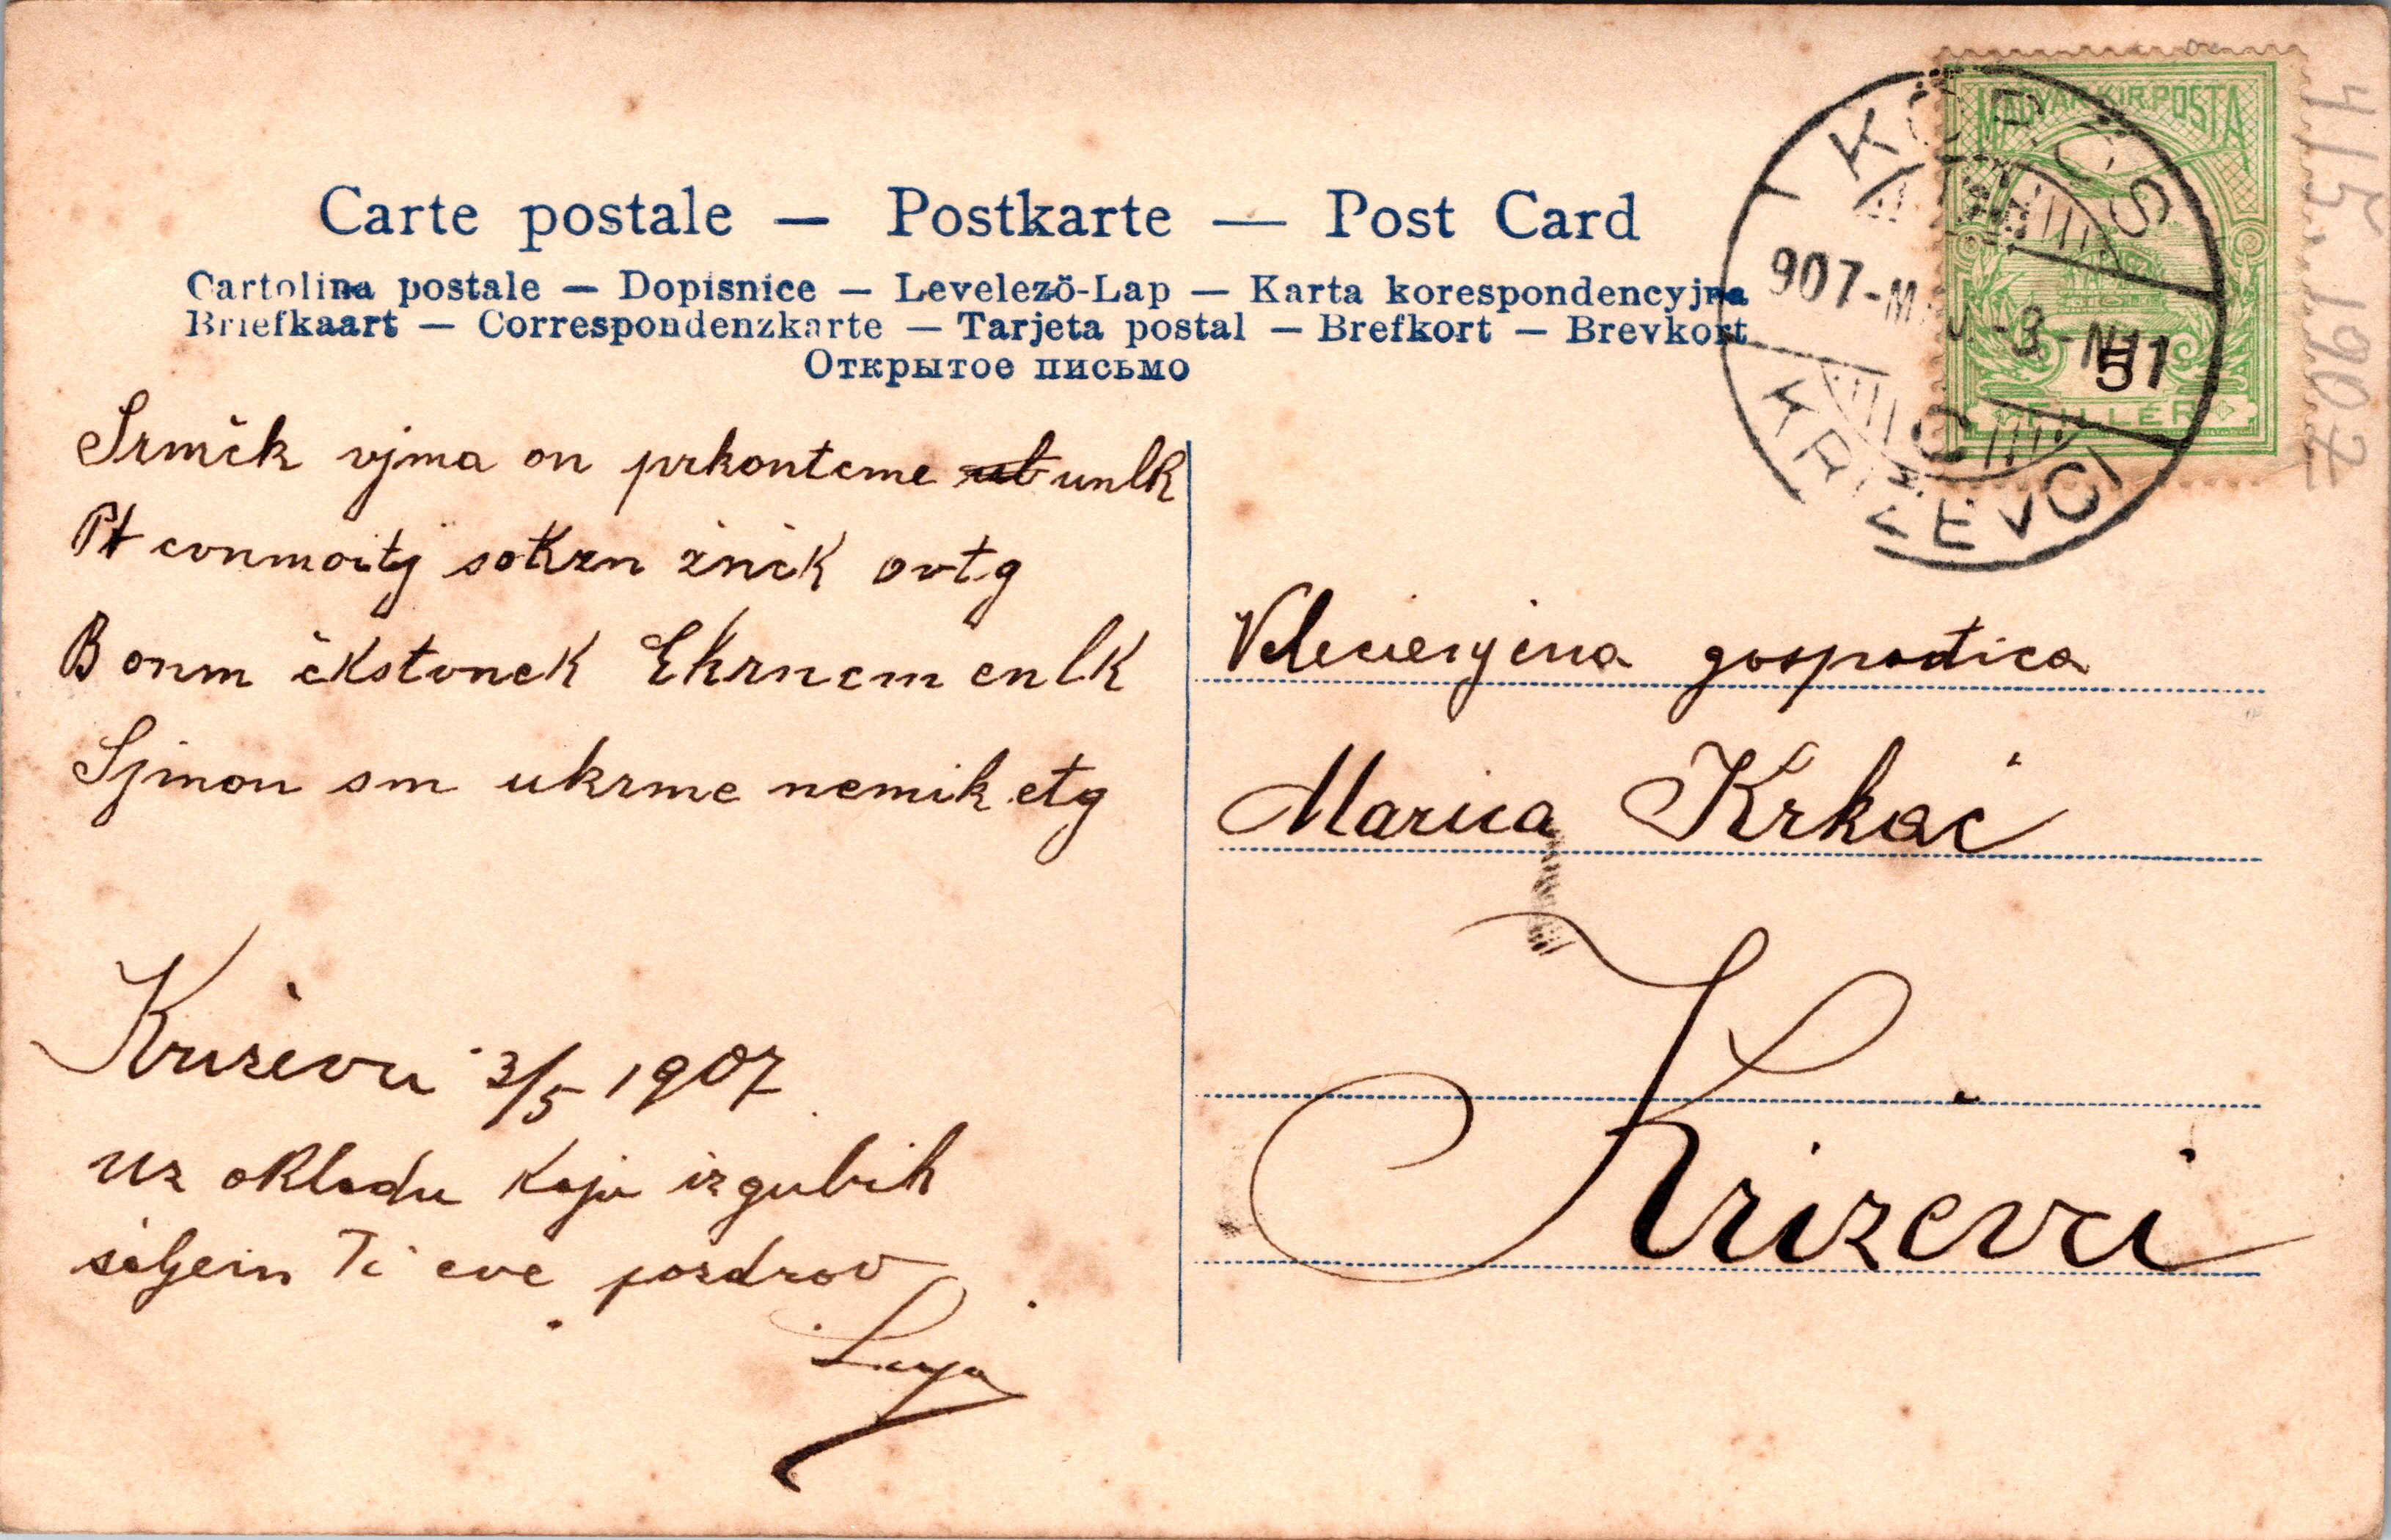 Carte postale — Postkarte — Post Card
Cartolina postale — Dopisnice — Levelező-Lap — Karta korespondencyjna
Briefkaart — Correspondenzkarte — Tarjeta postal — Brefkort — Brevkort
Открытое письмо
MAGYAR KIR. POSTA
KŐRÖS
907-MÁJ.-3-N11
5
FILLÉR
KRIŽEVCI
4 15. 1907
Srmčk vjma on prkonteme unlk
Pt connmoitj sokrn žnčk ovtg
Bonm čkstvnek Ekrnem enlk
Sjmon sm ukrme nemik etg
Križevci 3/5 1907
Uz okladu koju izgubih
šaljem Ti eve pozdrav
gospodica
Marica Krkač
Križevci